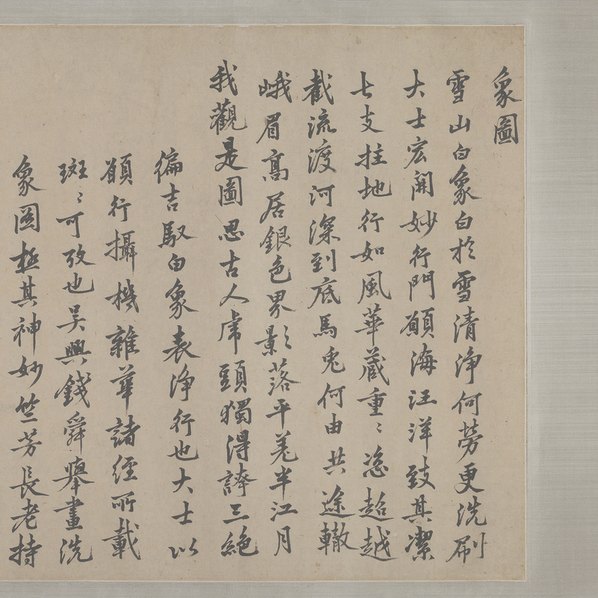 象圖
雪山白象白於雪清淨何勞更洗刷
大士宏開妙行門願海汪洋致其潔
七支拄地行如風華藏重〻恣超越
截流渡河深到底馬兎何由共途轍
峨眉高居銀色界影落平羌半江月
我觀是圖思古人虎頭獨得誇三絕
徧吉馭白象表淨行也大士以
願行攝機雜華諸經所載
斑〻可攷也吳興錢舜舉畫洗
象圖極其神妙竺芳長老持